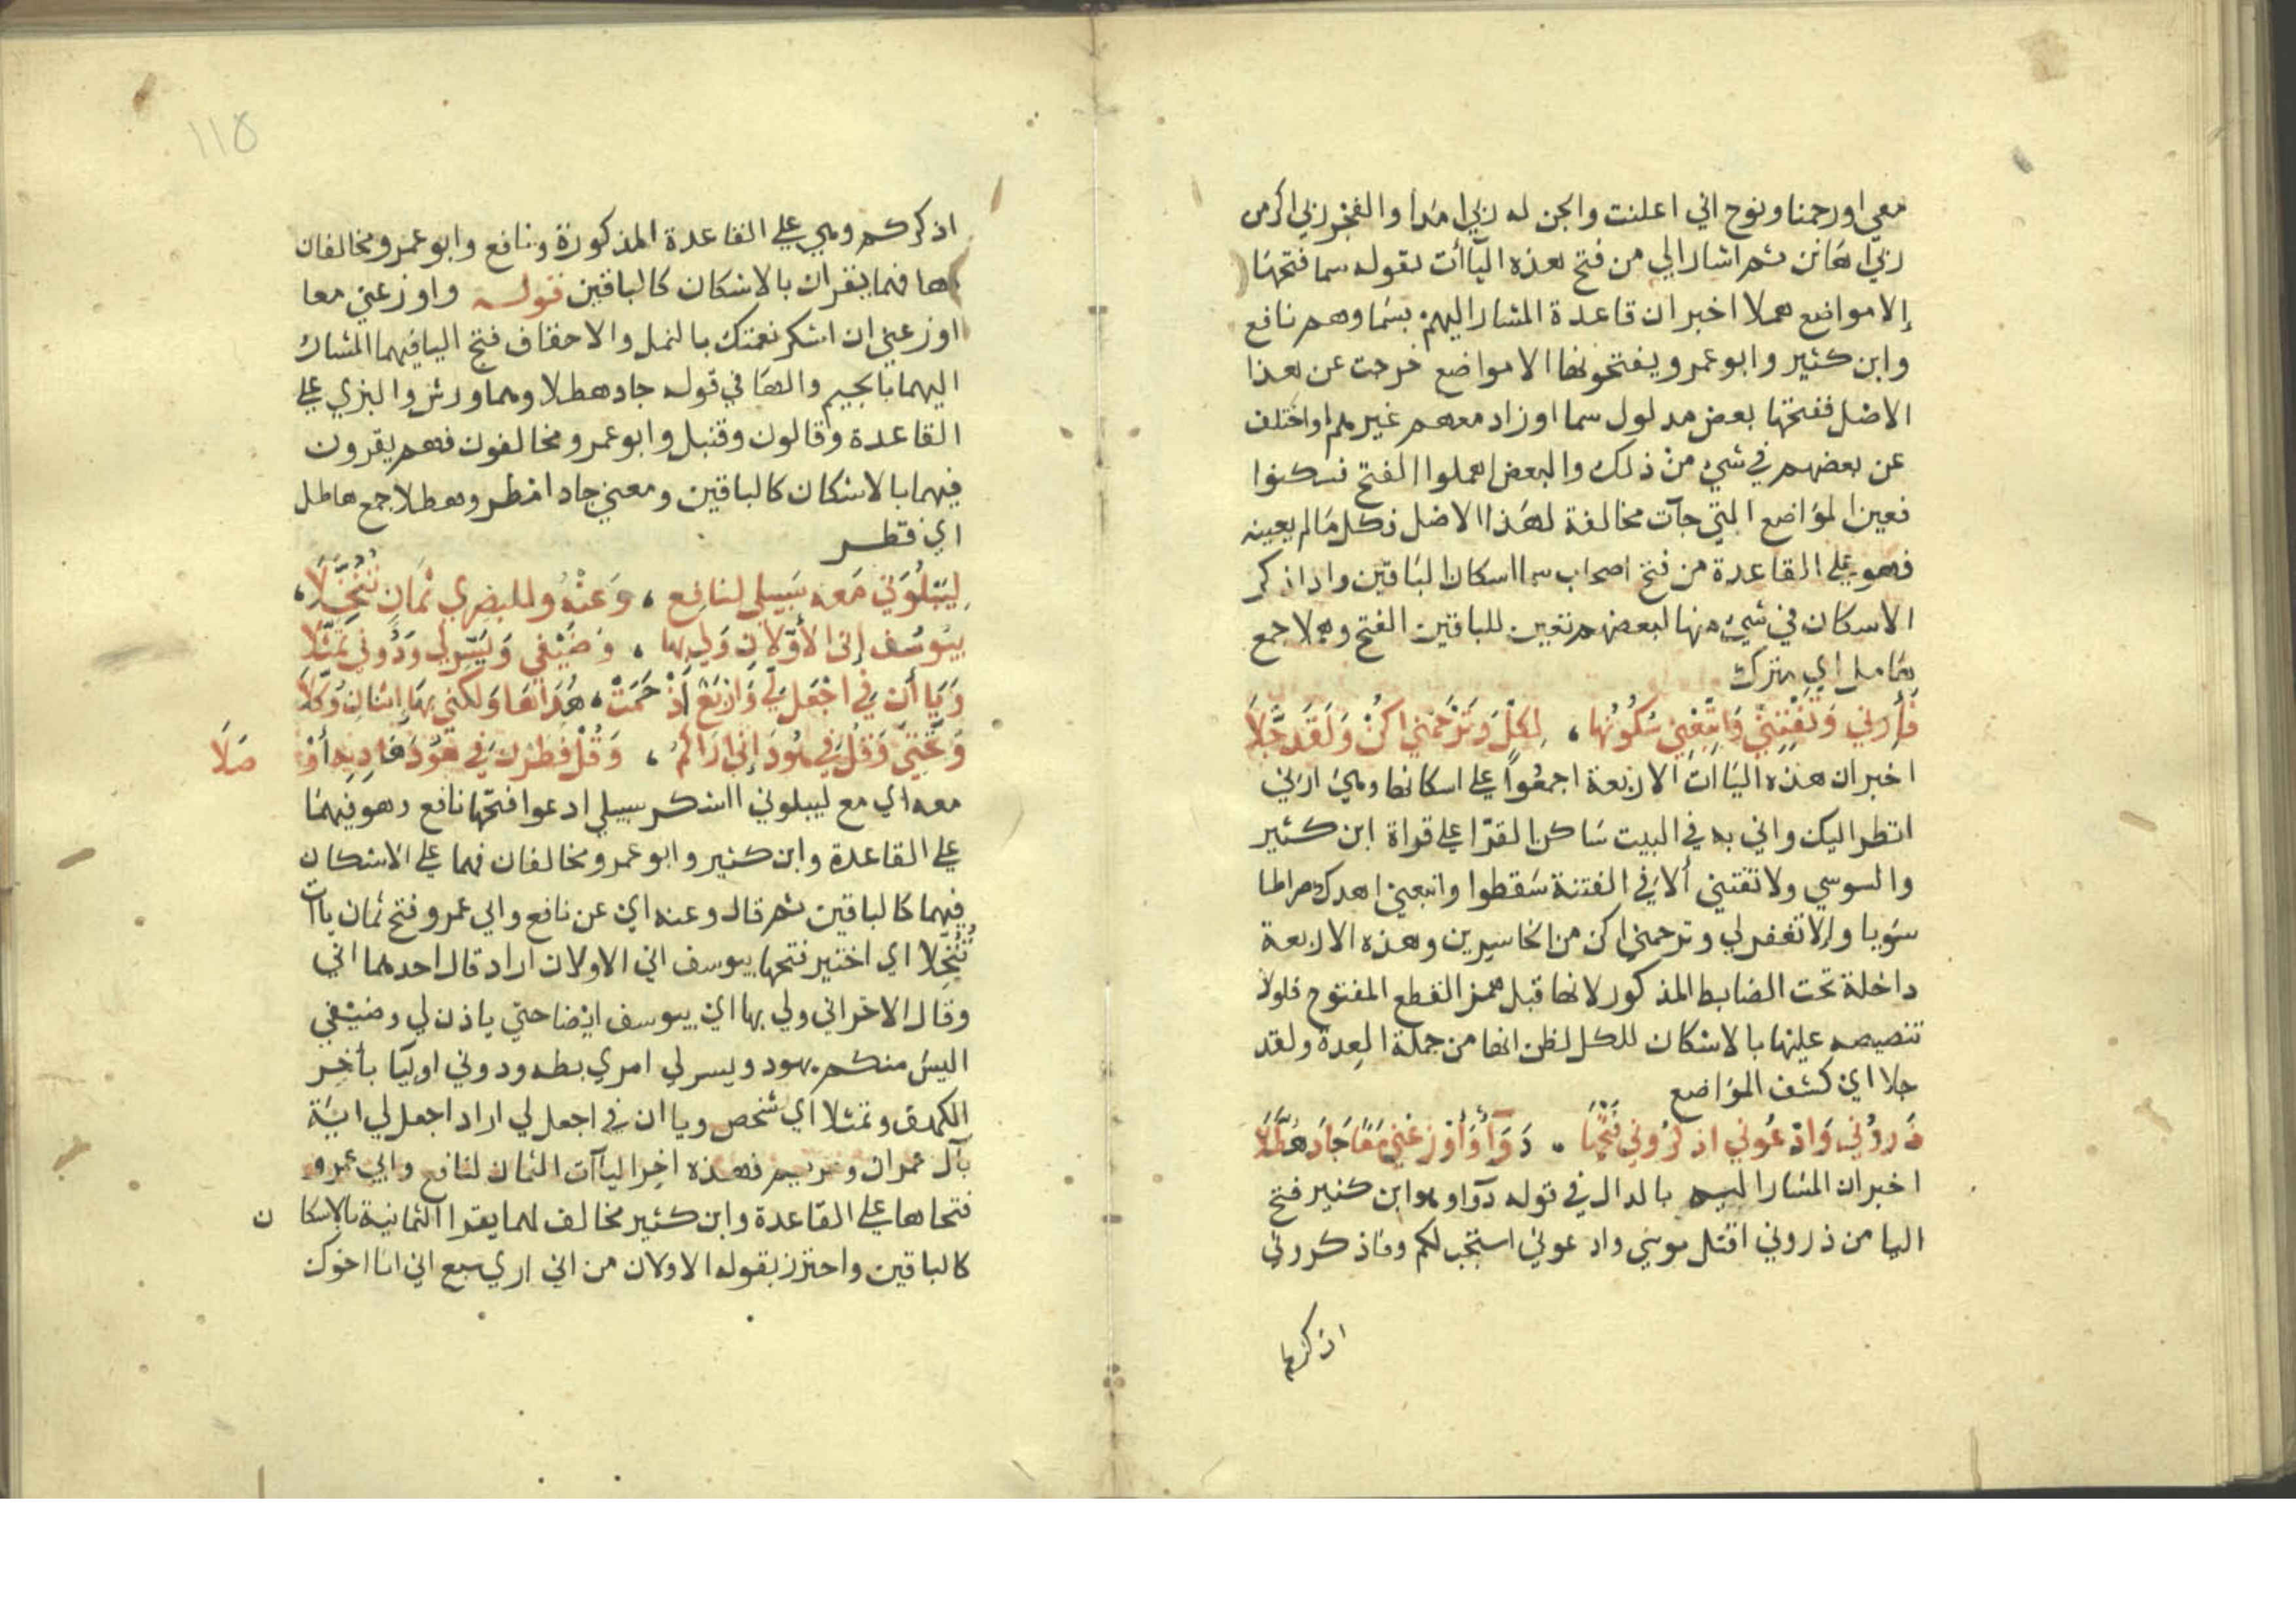 معي اورحمنا ونوح اني اعلنت والجن له ربي امدا والفجر ربي اكرمن
ربي اهانن ثم اشار الي من فتح هذه الياآت بقوله سما فتحها
إلا مواضع هملا اخبر ان قاعدة المشار اليهم بسما وهم نافع
وابن كثير وابو عمرو يفتحونها الا مواضع خرجت عن هذا
الاصل ففتحها بعض مدلول سما او زاد معهم غيرهم او اختلف
عن بعضهم في شي من ذلك والبعض اهملوا الفتح فسكنوا
فعين المواضع التي جآت مخالفة لهذا الاصل فكل ما لم يعينه
فهو علي القاعدة من فتح اصحاب سما اسكان الباقين واذا ذكر
الاسكان في شي منها لبعضهم تعين للباقين الفتح وهملا جمع
هامل اي مترك
فأرني وتفتني واتبعني سكونها ، لكل وترحمني اكن ولقد جلا
اخبر ان هذه الياات الاربعة اجمعوا علي اسكانها وهي ارني
انظر اليك واتي به في البيت ساكن القرا علي قراة ابن كثير
والسوسي ولا تفتني ألا في الفتنة سقطوا واتبعني اهدك صراطا
سويا وإلا تغفرلي وترحمني اكن من الخاسرين وهذه الاربعة
داخلة تحت الضابط المذكور لانها قبل همز القطع المفتوح فلولا
تنصيصه عليها بالاسكان للكل لظن انها من جملة العدة ولقد
جلا اي كشف المواضع
ذروني وادعوني اذكروني فتحها ، دوآ وأوزعني معا جاد هطلا
اخبر ان المشار اليه بالدال في قوله دوآ وهو ابن كثير فتح
اليا من ذروني اقتل موسي وادعوني استجب لكم وفاذكروني
اذكركم
اذكركم وهي علي القاعدة المذكورة ونافع وابو عمرو مخالفان
ها فهما يقران بالاسكان كالباقين قوله واوزعني معا
اوزعني ان اشكر نعمتك بالنمل والاحقاف فتح اليا فيهما المشار
اليهما بالجيم والها في قوله جاد هطلا وهما ورش والبزي علي
القاعدة وقالون وقنبل وابو عمرو مخالفون فهم يقرون
فيهما بالاسكان كالباقين ومعني جاد امطر وهطلا جمع هاطل
اي قطر
ليبلوني معه سبيلي لنافع ، وعنه وللبصري ثمان تنخلا ،
بيوسف إني الأولان ولي بها ، وضيفي ويسر لي ودوني تمثلا
وياأن في اجعل لي واربع اذ حمت ، هداها ولكني بها إثنان وكلا
وتحتي وقل في هود إني أراكم ، وقل فطرن في هود هاديه أو صلا
معه اي مع ليبلوني ااشكر سبيلي ادعوا فتحها نافع وهو فيهما
علي القاعدة وابن كثير وابو عمرو مخالفان فهما علي الاسكان
فيهما كالباقين ثم قال وعنه اي عن نافع وابي عمرو فتح ثمان ياآت
تنخلا اي اختير فتحها بيوسف اني الاولان اراد قال احدهما اني
وقال الاخر اني ولي بها اي بيوسف ايضا حتي ياذن لي وضيفي
اليس منكم بهود ويسر لي امري بطه ودوني اوليآ بأخر
الكهف وتمثلا اي شخص وياان في اجعل لي اراد اجعل لي اية
بآل عمران ومريم فهذه اخر الياآت الثمان لنافع وابي عمرو
فتحاها علي القاعدة وابن كثير مخالف لهما يقرا الثمانية بالاسكا ن
كالباقين واحترز بقوله الاولان من اني اري سبع اني انا اخوك